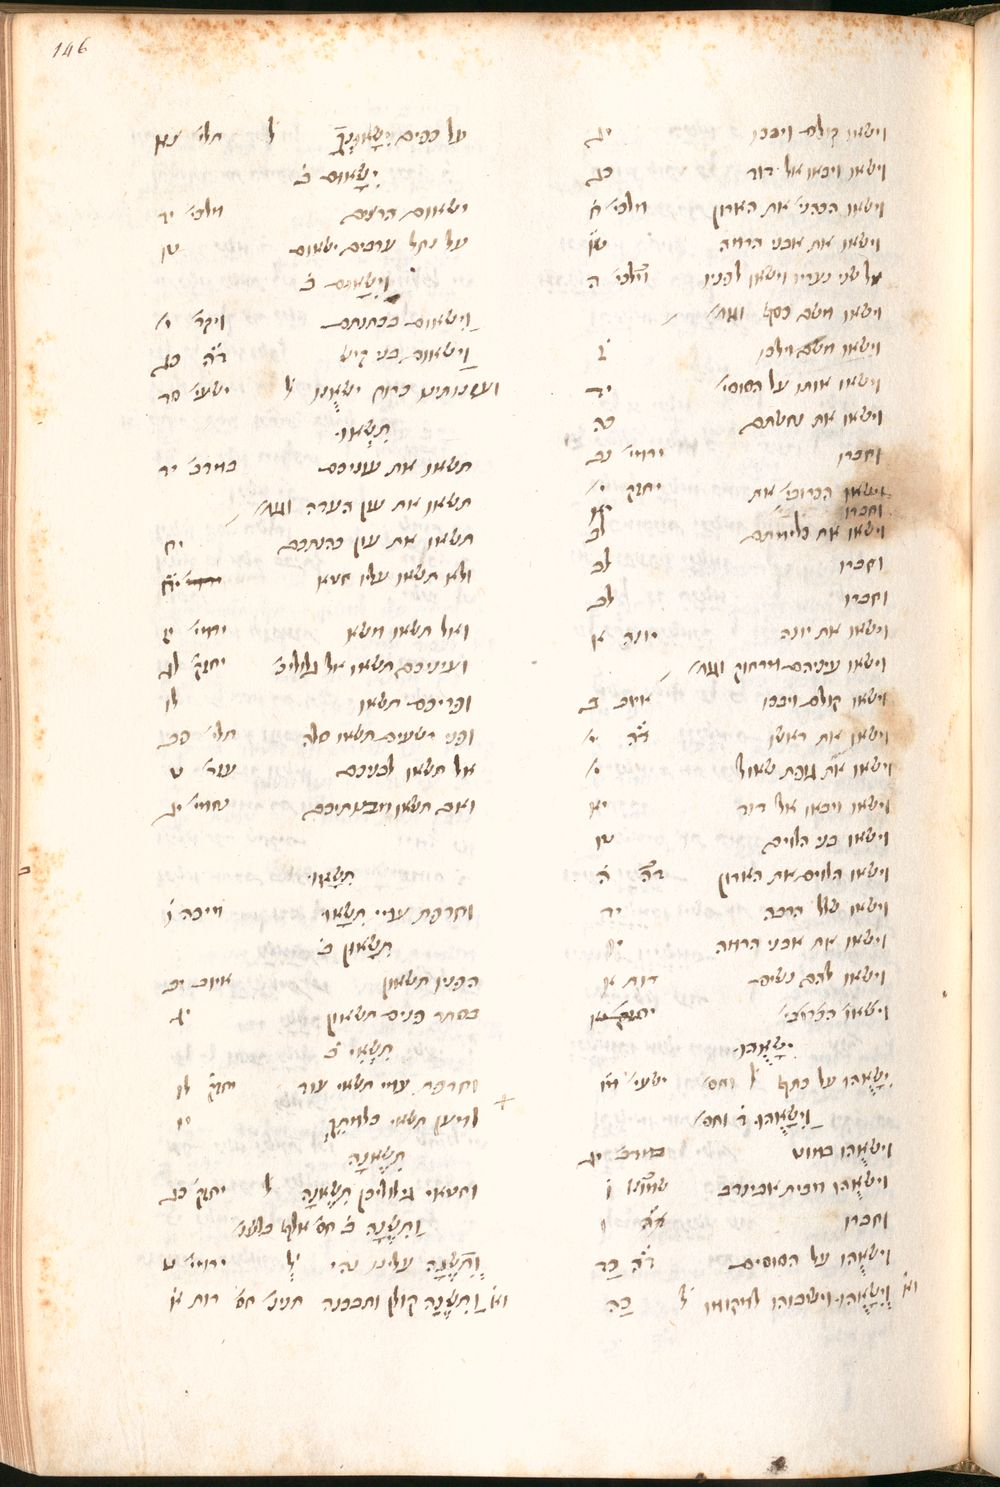 146
וישאו קולם ויבכו יג
וישאו ויבאו אל דוד כג
וישאו הכהני׳ את הארון מלכי׳ ח
וישאו את אבני הרמה טו
על שני נעריו וישאו לפניו ה
וישאו משם כסף וגו׳
וישאו משם וילכו
וישאו אותו על הסוסי׳ יד
וישאו את נחשתם כה
וחברו ירמי׳ נב
וישאו הכרובי׳ את יחזק׳ י׳
וחברו יא
וישאו את כלימתם לב
וחברו לב
וחברו לב
וישאו את יונה יונה א
וישאו עיניהם מרחוק וגו׳
וישאו קולם ויבכו איוב ב
וישאו את ראשו דה י׳
וישאו את גופת שאול י׳
וישאו ויבאו אל דוד יא
וישאו בני הלוים טו
וישאו הלוים את הארון דה ה
וישאו שלל הרבה יד
וישאו את אבני הרמה
וישאו להם נשים רות א
וישאו הכרובי׳
יִשָּׂאֻהוּ
יִשָּׂאֻהוּ על כתף ל וחס׳ ישעי׳ מו
וַיִּשָּׂאֻהוּ ד וחס׳
וישאהו במוט במדב׳ יג
וישאהו מבית אבינדב שמו ו
וחברו ו
וישאהו על הסוסים דה כה
וא וישאהו וישבוהו למקומו ל כה
על כפים יִשָּׂאוּנְךָ ל תלי׳ צא
יִשָּׂאוּם ב
ישאום הרצים מלכי׳ יד
על נחל ערבים ישאום טו
וַיִּשָּׂאוּם ב
וישאום בכתנתם ויקר׳ י׳
וישאום בני קיש דה כג
ועונותינו כרוח ישאונו ל ישעי׳ סד
תִּשְׂאוּ
תשאו את עוניכם במדב׳ יד
תשאו את עון העדה וגו׳
תשאו את עון כהנתכם יח
ולא תשאו עליו חטא יח
ואל תשאו משא ירמי׳ יז
ועיניכם תשאו אל גלולי׳ יחזק׳ לג
ופריכם תשאו לו
ופני רשעים תשאו סלה תלי׳ פב
אל תשאו לבניכם עזר׳ ט
ואם תשאו מבנתיכם נחמי׳ יג
תִּשָּׂאוּ
וחרפת עמי תִּשָּׂאוּ מיכה ו
תִּשָּׂאוּן ב
הפניו תשאון איוב יג
בסתר פנים תשאון יג
תִּשְׂאִי ב
וחרפת עמי תשאי עוד יחזק׳ לו
למען תשאי כלמתך יו
תִּשֶּׂאנָה
וחטאי גלוליכן תִּשֶּׂאנָה ל יחזק׳ כג
וַתִּשֶּׂנָה ב חס׳ אלף
וְתִשֶּׂנָה עלינו נהי ל ירמי׳ ט
וא וַתִּשֶּׂנָה קולן ותבכנה תניני חס׳ רות א